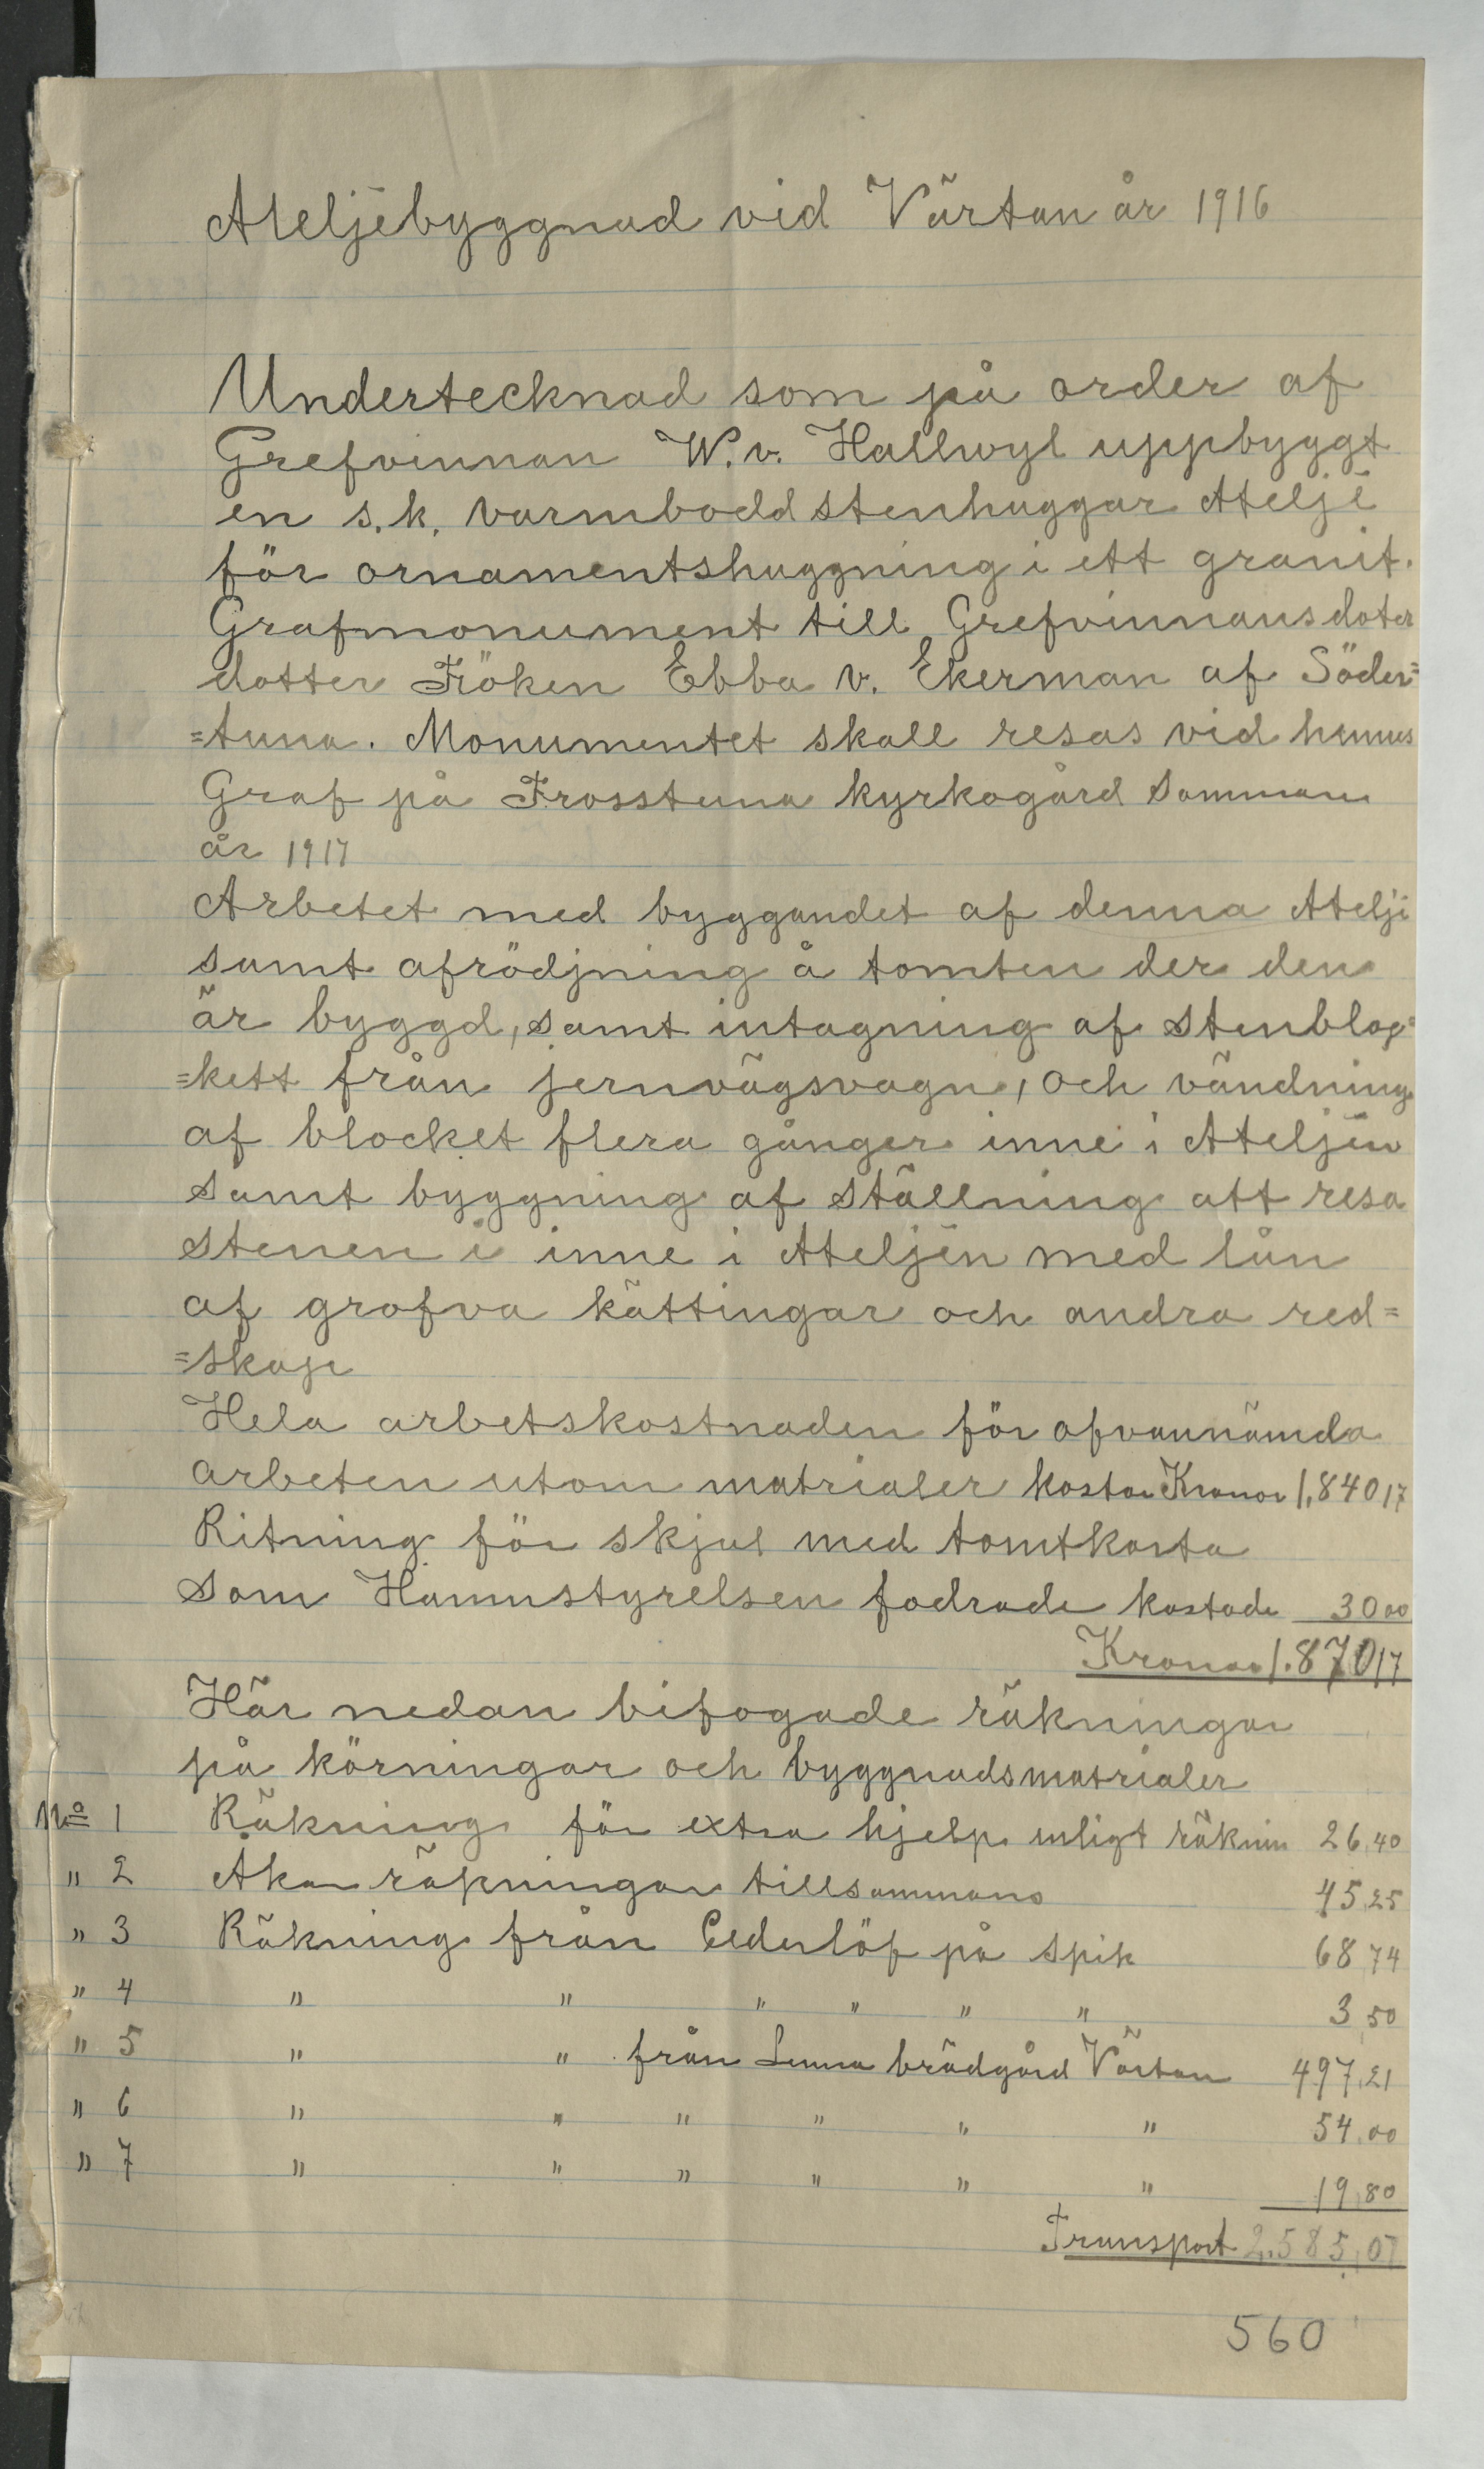 Ateljébyggnad vid Värtan år 1916
Undertecknad som på order af
Grefvinnan W. v. Hallwyl uppbyggt
en s.k. varmbodd stenhuggar Ateljé
för ornamentshuggning i ett granit.
Grafmonument till Grefvinnans doter
dotter Fröken Ebba v. Ekerman af Söder=
=tuna. Monumentet skall resas vid hennes
Graf på Frosstuna kyrkogård Sommaren
år 1917
Arbetet med byggandet af denna Atelje
samt afrödjning å tomten der den
är byggd, samt intagning af stenbloc=
=kett från jernvägsvagn, och vändning
af blocket flera gånger inne i Ateljén
samt byggning af ställning att resa
stenen i inne i Ateljén med lån
af grofva kättingar och andra red=
=skap
Hela arbetskostnaden för ofvannämda
arbeten utom matrialer kostar Kronor 1,840 17
Ritning för skjul med tomtkarta
som Hamnstyrelsen fodrade kostade 30 00
Kronor 1.870 17
Här nedan bifogade räkningar
på körningar och byggnadsmatrialer
No 1 Räkning för extra hjelp enligt räknin 26,40
" 2 Åkar räkningar tillsammans 45,25
" 3 Räkning från Cederlöf på spik 68 74
" 4 " " " " " " 3,50
" 5 " " från Lenna brädgård Värtan 497,21
" 6 " " " " " " 54,00
" 7 " " " " " " 19,80
Transport 2.585,07
560